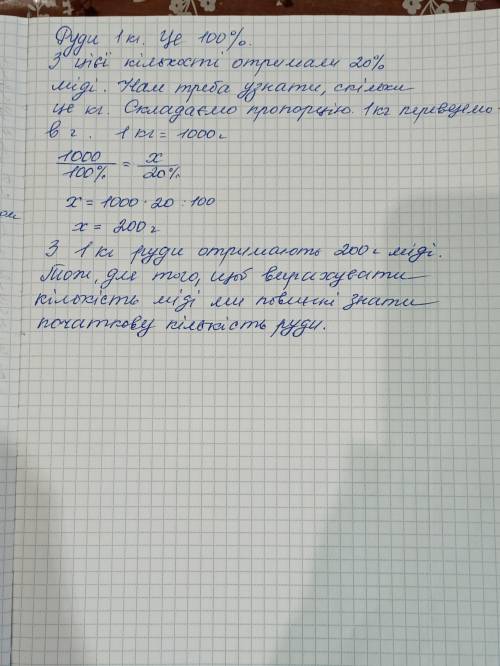 Руди 1 кг. Це 100%.
З цієї кількості отримали 20%
міді. Нам треба узнати, скільки
це кг. Складаємо пропорцію. 1кг переведемо
в г. 1 кг = 1000г
1000/100% = x/20%
x = 1000 · 20 : 100
x = 200г
З 1 кг руди отримають 200г міді.
Тож, для того, щоб вирахувати
кількість міді ми повинні знати
початкову кількість руди.